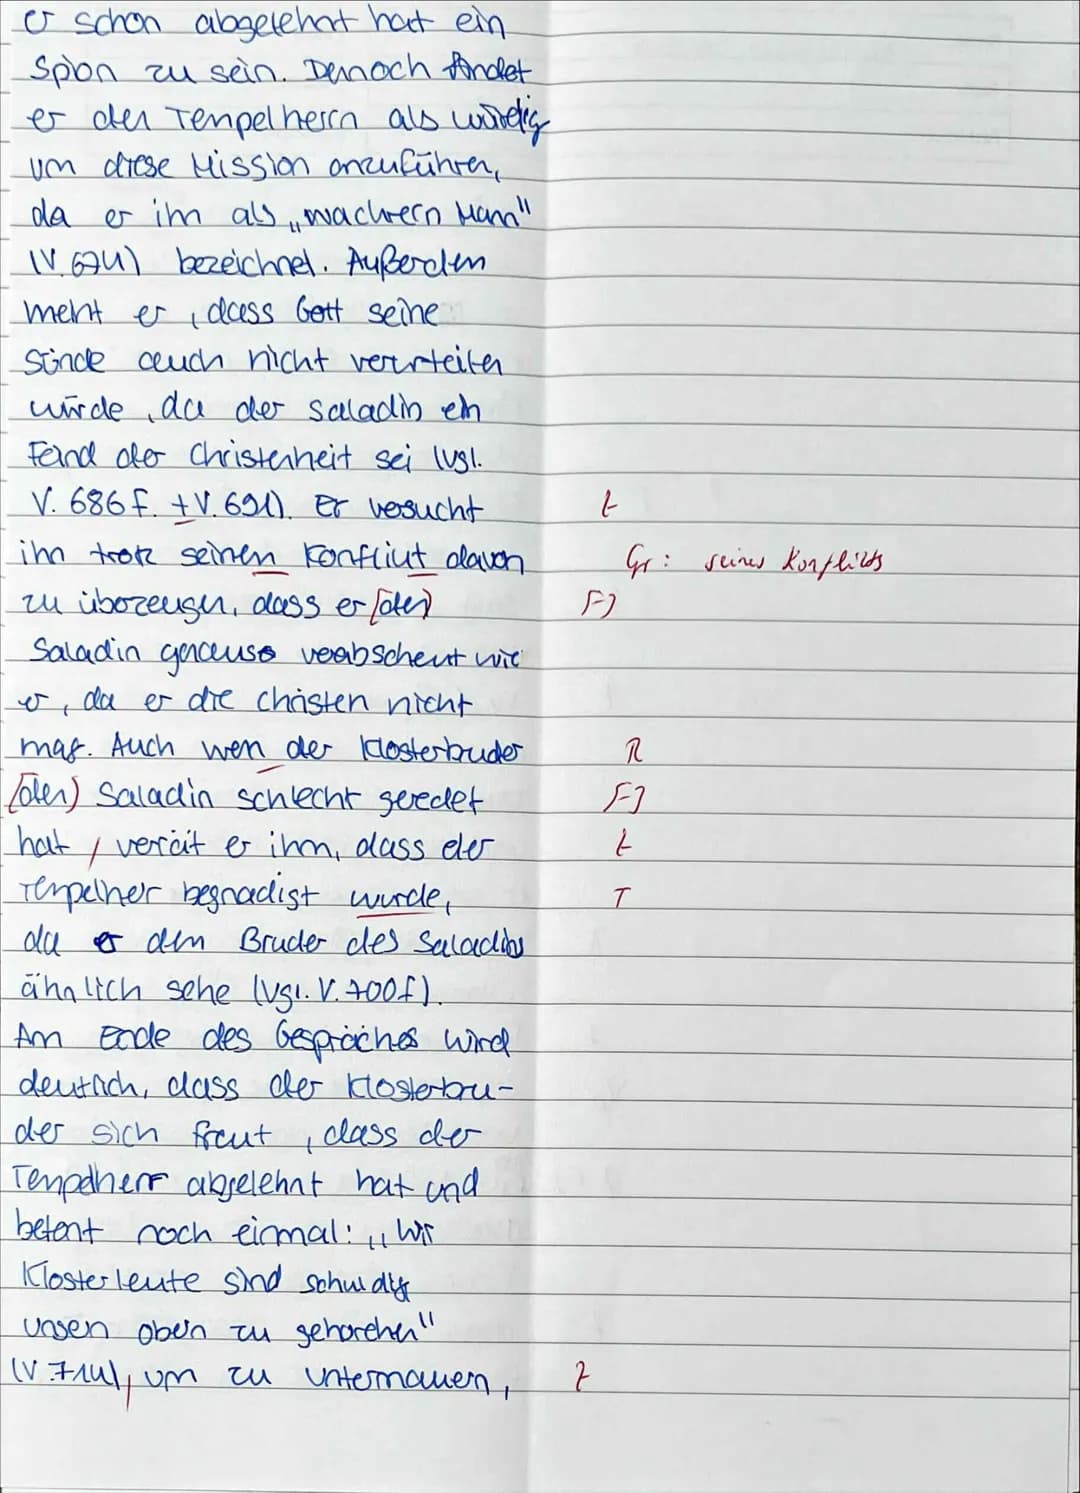 er schon abgelehnt hat ein
Spion zu sein. Dennoch findet
er den Tempelherrn als würdig
um diese Mission anzuführen,
da er ihn als „wackrern Mann"
(V. 674) bezeichnet. Außerdem
meint er, dass Gott seine
Sünde auch nicht verurteilen
würde, da der Saladin ein
Feind der Christenheit sei (vgl.
V. 686 f. + V. 691). Er versucht Z
ihn trotz seinen Konflikt davon Gr: seines Konflikts
zu überzeugen, dass er [den] []
Saladin genauso verabscheut wie
er, da er die Christen nicht
mag. Auch wen der Klosterbruder R
[den] Saladin schlecht geredet []
hat / verrät er ihm, dass der Z
Tempelherr begnadigt wurde, T
da er dem Bruder des Saladins
ähnlich sehe (vgl. V. 700f).
Am Ende des Gespräches wird
deutlich, dass der Klosterbru-
der sich freut, dass der
Tempelherr abgelehnt hat und
betont noch einmal: „Wir
Klosterleute sind schuldig
unsen obern zu gehorchen"
(V. 714), um zu untermauern, Z